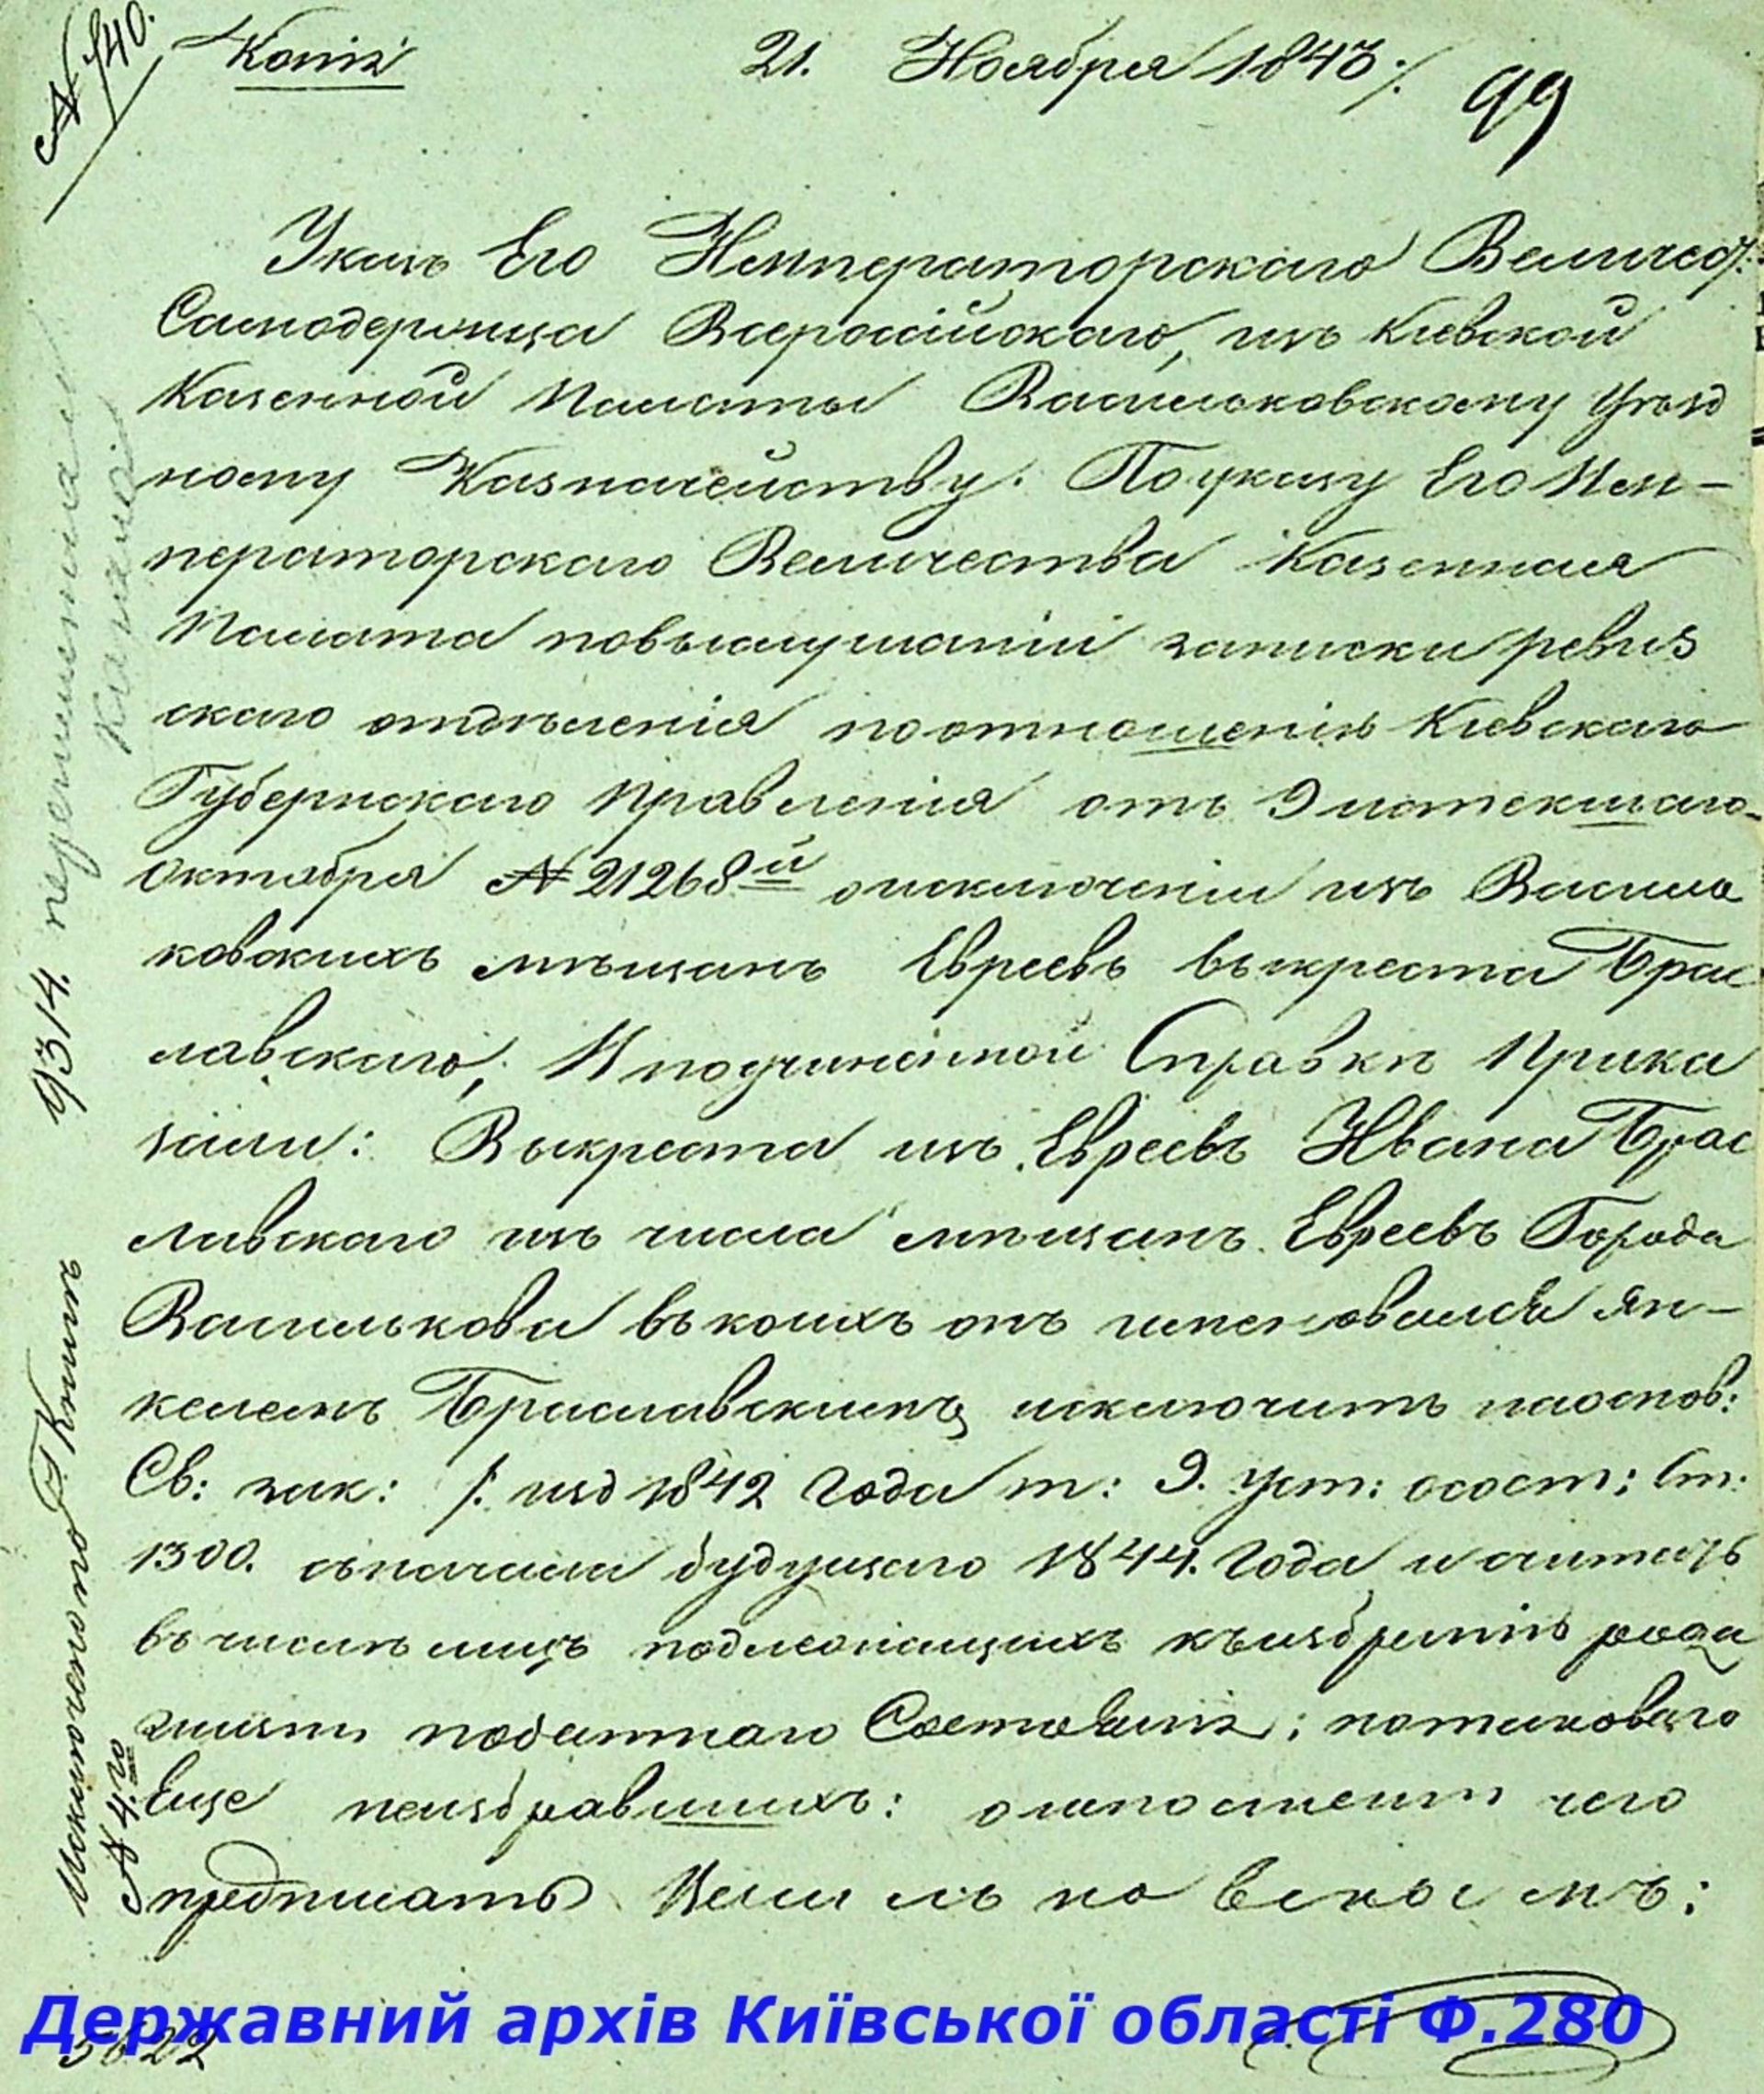 № 140.
Копія
21. Ноября 1843 /.
99
Указъ Его Императорскаго Величес:
Самодержца Всеросійскаго, изъ Кіевской
Казенной Палаты Васильковскому Уѣзд
ному Казначейству. По указу Его Им-
ператорскаго Величества Казенная
Палата повыслушаніи записки ревиз
скаго отдѣленія поотношенію Кіевскаго
Губернскаго Правленія отъ 9 истекшаго
Октября № 21268й оисключеніи изъ Василь
ковскихъ мѣщанъ Евреевъ выкреста Брас
лавскаго, Ипоучиненной Справкѣ Прика
зали: Выкреста изъ Евреевъ Ивана Брас
лавскаго изъ числа мѣщанъ Евреевъ Города
Василькова въкоихъ онъ именовался Ян-
келемъ Браславскимъ исключить наоснов:
Св: зак: /. изд 1842 Года т: 9. уст: осост: Ст:
1300. съначала будущаго 1844. Года и считать
въчислѣ лицъ подлежащихъ къизбранію рода
жизни податнаго Состоянія; потаковаго
Еще неизбравшихъ: оисполненіи чего
предписать
1314.
Исключенъ по
№ 4.го
Державний архів Київської області Ф.280